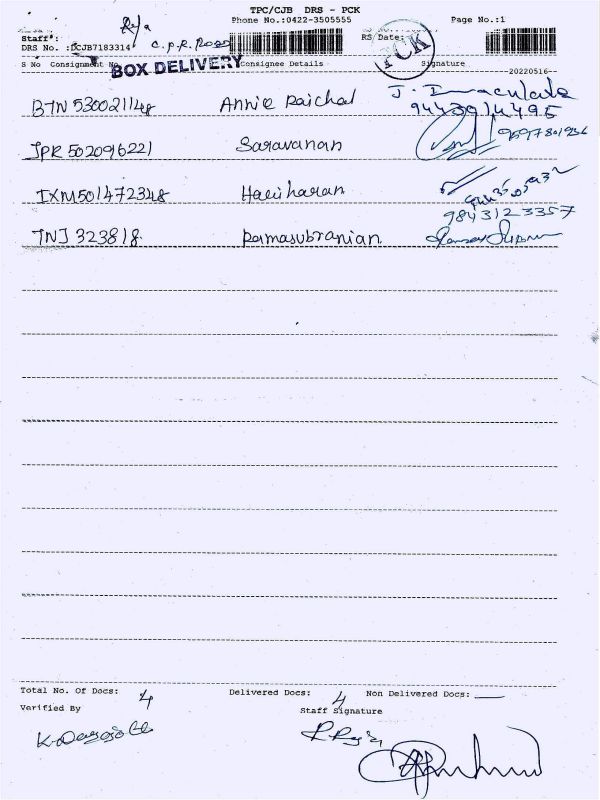 TPC/CJB DRS - PCK
Phone No.:0422-3505555
Page No.:1
Staff: Raja
DRS No. :DCJB7183314 C.P.R. Road
PCK
RS/Date:
S No Consignment No Consignee Details Signature
BOX DELIVERY
20220516
BTN 530021148 Annie Raichal J. Immaculate
9443914495
JPR 502096221 Saravanan
IXM501472348 Hariharan
9843123357
TNJ 323818 Ramasubranian
Total No. Of Docs: 4 Delivered Docs: 4 Non Delivered Docs:
Verified By Staff Signature